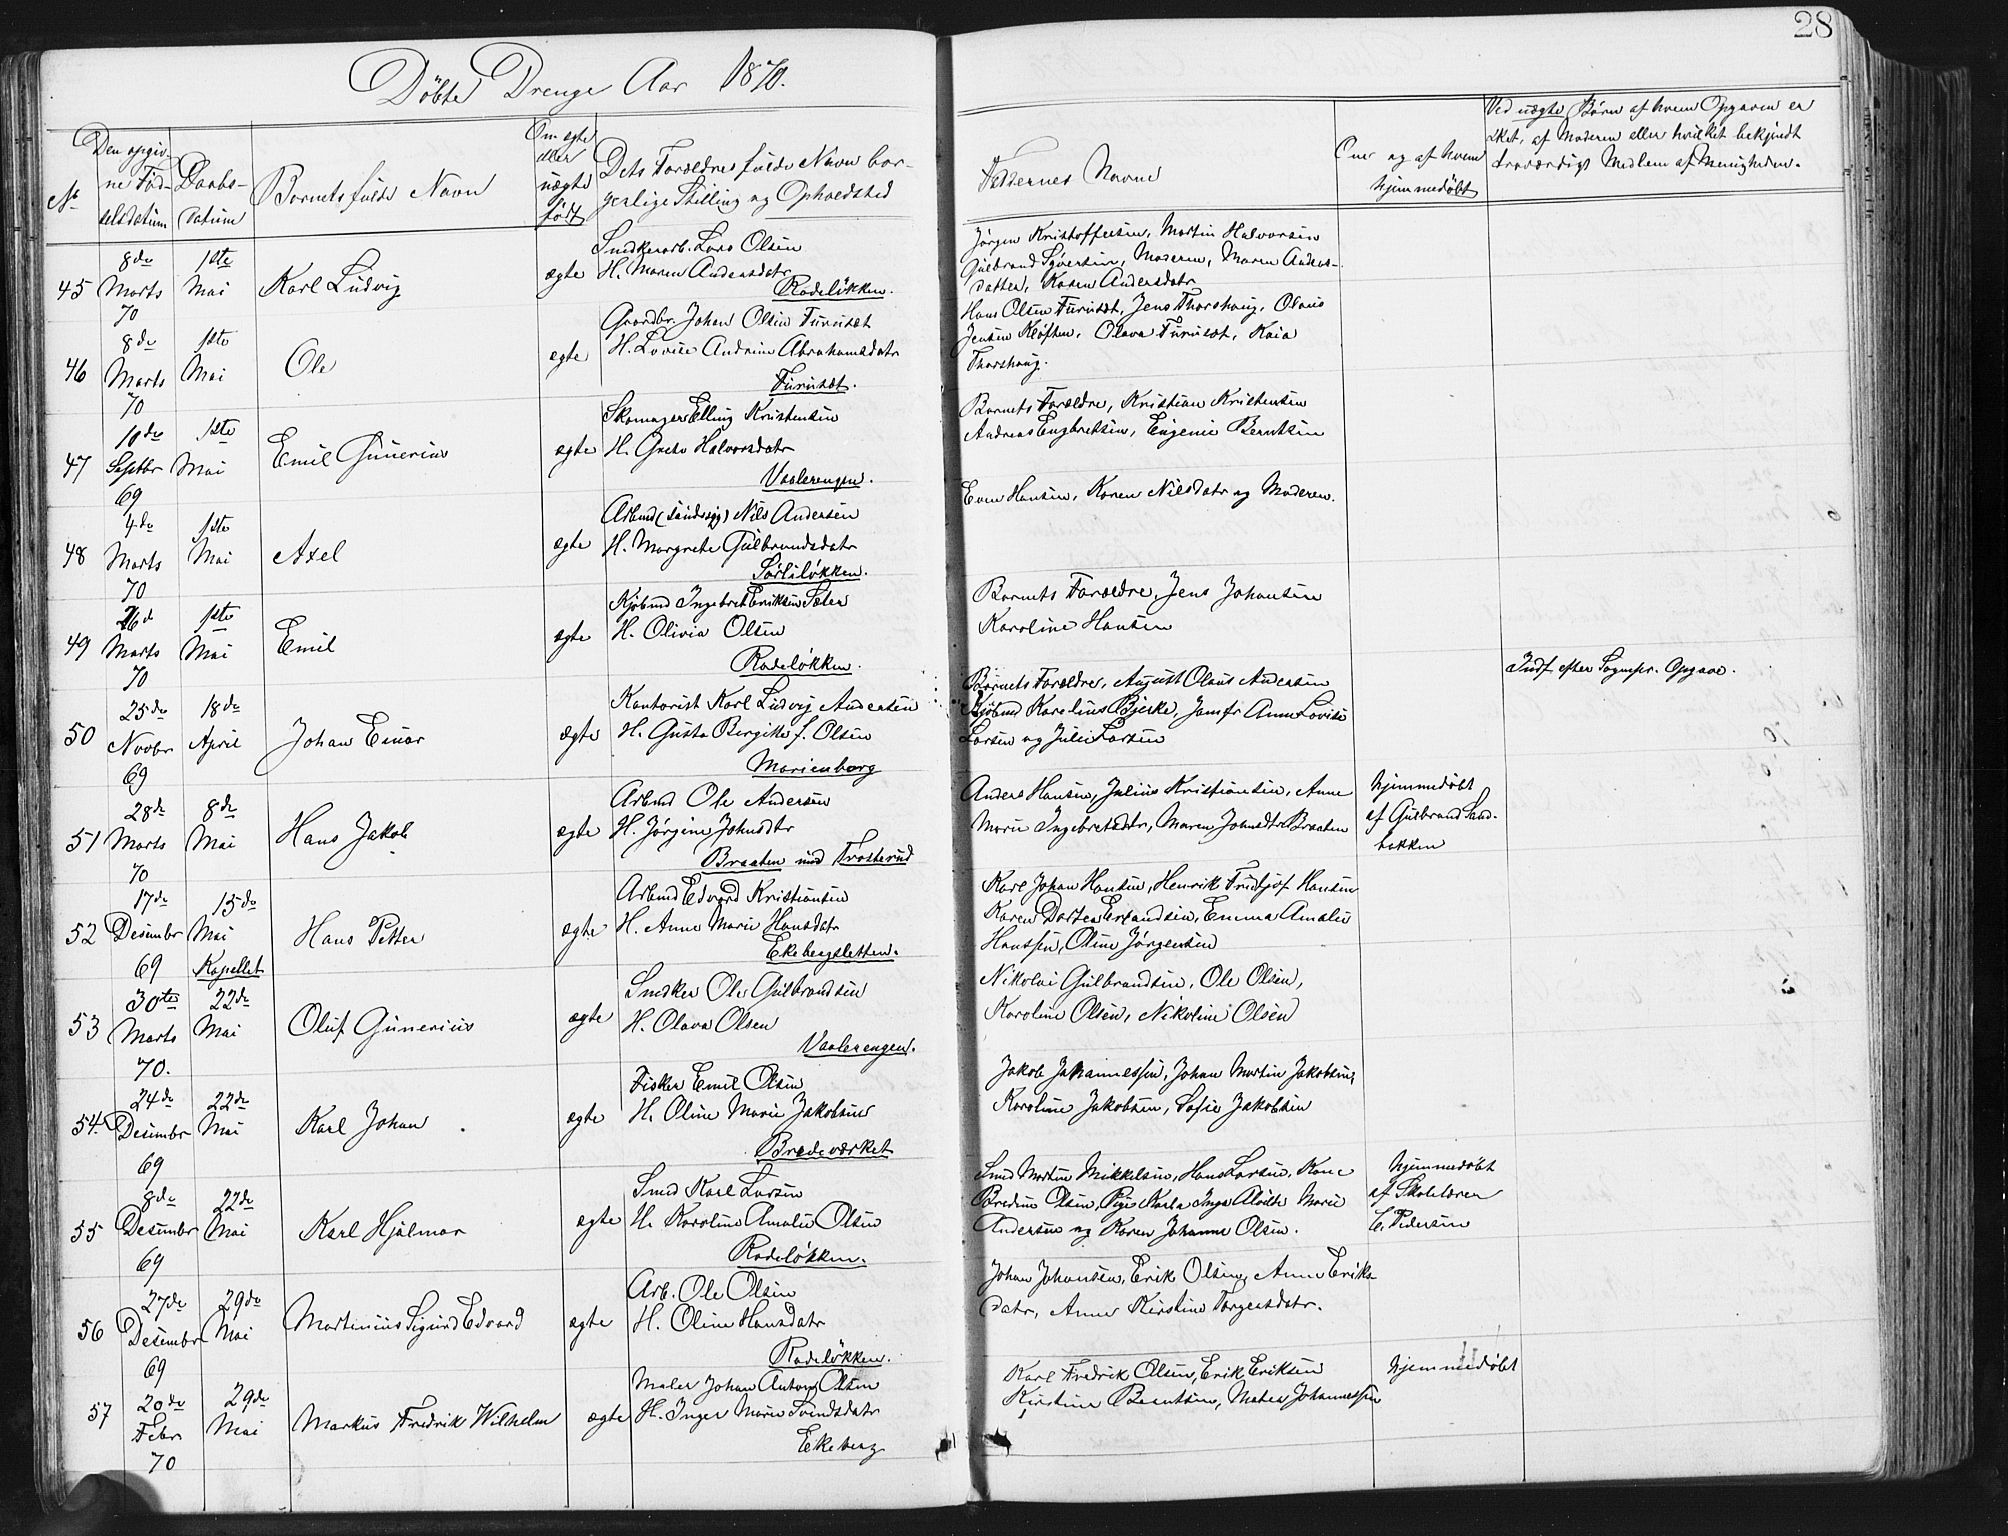 28
Döbte Drenge Aar 1870.
No
Den opgiv-
ne Föd-
selsdatum
Daabs-
datum
Barnets fulde Navn
Om ægte
eller
uægte
født
Dets Forældres fulde Navn bor-
gerlige Stilling og Opholdsted
Faddernes Navne
Om og af hvem
hjemmedöbt
Ved uægte Börn af hvem Opgaven er
sket, af Moderen eller hvilket bekjendt
troværdigt Medlem af Menigheden.
45
8de Marts 70
1ste Mai
Karl Ludvig
ægte
Snedkerarb. Lars Olsen
H. Maren Andersdatr
Rodeløkken.
Jörgen Kristoffersen, Martin Halvorsen
Gulbrand Syversen, Moderen, Maren Anders-
datter, Karen Andersdatr
46
8de Marts 70
1ste Mai
Ole
ægte
Gaardbr. Johan Olsen Furuset
H. Lovise Andrine Abrahamsdatr
Furuset.
Hans Olsen Furuset, Jens Thorshaug, Olaus
Jensen Kløften, Olava Furuset, Kaia
Thorshaug.
47
10de Septbr 69
1ste Mai
Emil Gunerius
ægte
Skomager Elling Kristensen
H. Grete Halvorsdatr
Vaalerengen.
Barnets Forældre, Kristian Kristensen
Andreas Engbretsen, Eugenie Berntsen
48
4de Marts 70
1ste Mai
Axel
ægte
Arbmd Nils Andersen
H. Margrete Gulbrandsdatr
Sørliløkken.
Even Hansen, Karen Nilsdatr og Moderen.
49
26d Marts 70
1ste Mai
Emil
ægte
Kjøbmd Ingebret Eriksen Sæter
H. Olivia Olsen
Rodeløkken.
Barnets Forældre, Jens Johansen
Karoline Hansen
50
25de Novbr 69
18de April
Johan Einar
ægte
Kontorist Karl Ludvig Andersen
H. Gusta Birgitte f. Olsen
Marienborg
Barnets Forældre, August Olaus Andersen
Kjöbmd Karelius Bjerke, Jomfr Anne Lovise
Larsen og Julie Larsen
Indf efter Sognepr. Opgave.
51
28de Marts 70
8de Mai
Hans Jakob
ægte
Arbmd Ole Andersen
H. Jørgine Johnsdtr
Braaten und Trosterud
Anders Hansen, Julius Kristiansen, Anne
Marie Ingebretsdatr, Maren Johnsdtr Braaten
hjemmedöbt
af Gulbrand Sand-
bakken
52
17de Desember 69
15de Mai
Kapellet
Hans Petter
ægte
Arbmd Edvard Kristiansen
H. Anne Marie Hansdatr
Ekebergsletten.
Karl Johan Hansen, Henrik Fridtjof Hansen
Karen Dortea Erlandsen, Emma Amalie
Hanssen, Oline Jörgensen
53
30te Marts 70.
22de Mai
Oluf Gunerius
ægte
Snedker Ole Gulbrandsen
H. Olava Olsen
Vaalerengen.
Nikolai Gulbrandsen, Ole Olsen,
Karoline Olsen, Nikoline Olsen
54.
24de Desember 69
22de Mai
Karl Johan
ægte
Fisker Emil Olsen
H. Oline Marie Jakobsen
Brodeværket
Jakob Johannessen, Johan Martin Jakobsen,
Karoline Jakobsen, Sofie Jakobsen
55
8de Desember 69
22de Mai
Karl Hjalmar
ægte
Smed Karl Larsen
H. Karoline Amalie Olsen
Rodeløkken.
Smed Morten Mikkelsen, Hans Larsen, Kone
Bredine Olsen, Pige Karla Inga Alvilde Marie
Andersen og Karen Johanne Olsen.
hjemmedöbt
af Skolelærer
C. Pedersen
56
27de Desember 69
29de Mai
Martinius Sigurd Edvard
ægte
Arb. Ole Olsen
H. Oline Hansdatr
Rodeløkken.
Johan Johansen, Erik Olsen, Anne Eriks-
datr, Anne Kirstine Torgersdatr.
57
20de Febr 70
29de Mai
Markus Fredrik Wilhelm
ægte
Maler Johan Anton Olsen
H. Inger Marie Svendsdatr
Ekeberg
Karl Fredrik Olsen, Erik Eriksen
Kirstine Berntsen, Matea Johannessen
hjemmedöbt